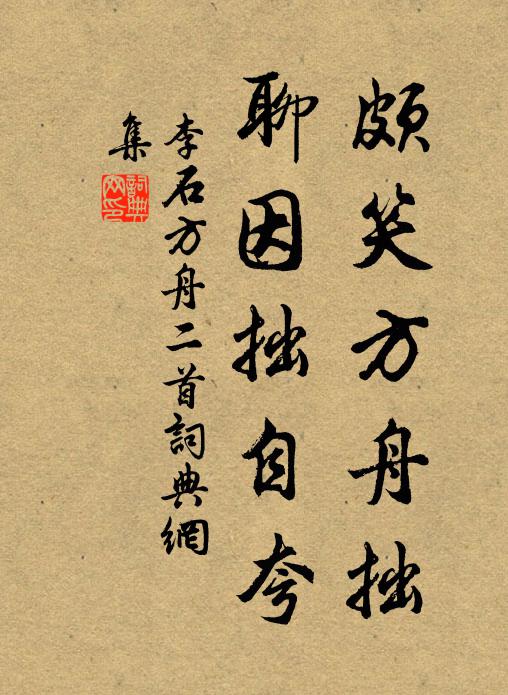 頗笑方舟拙
聊因拙自夸
李石方舟二首詞典網
集
詞典網印